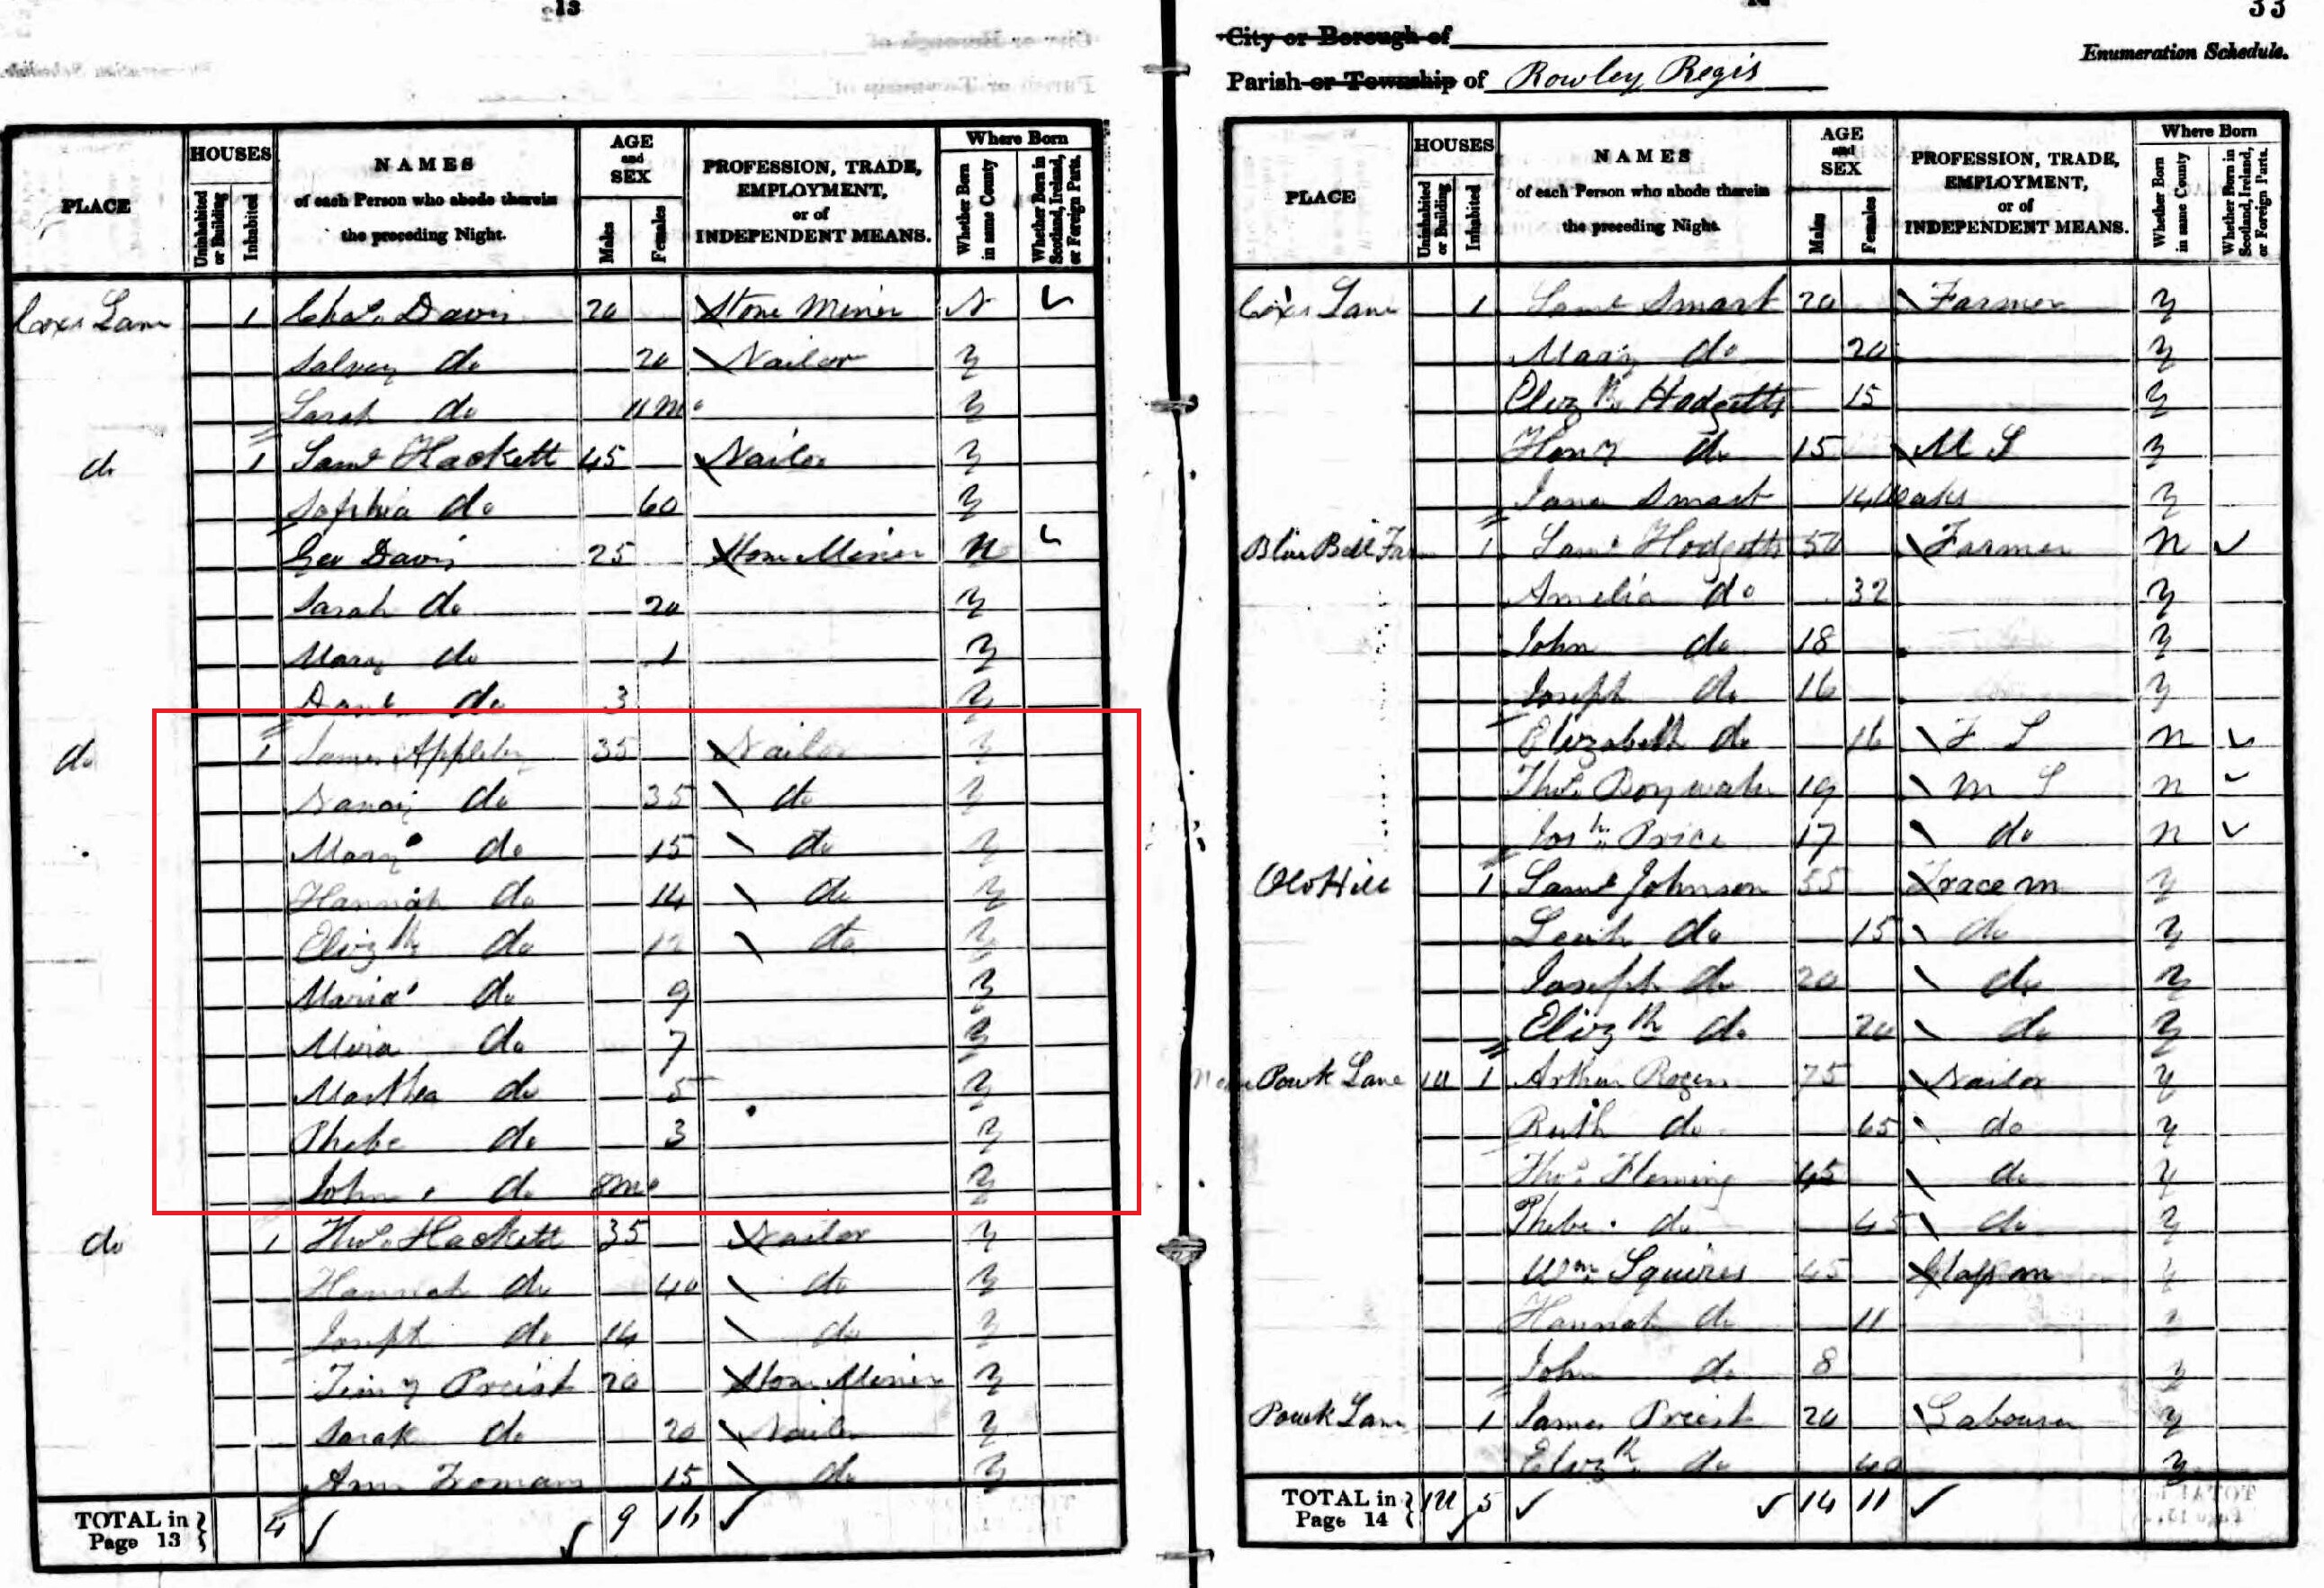 13
PLACE
HOUSES
Uninhabited or Building
Inhabited
NAMES
of each Person who abode therein
the preceding Night.
AGE
and
SEX
Males
Females
PROFESSION, TRADE,
EMPLOYMENT,
or of
INDEPENDENT MEANS.
Where Born
Whether Born in same County
Whether Born in Scotland, Ireland, or Foreign Parts.
Coxes Lane 1 Chas. Davis 20 Stone Miner N
do 20 Nailor y
Sarah do 11 mo y
do 1 Saml Hackett 45 Nailor y
Sophia do 60 y
Geo Davis 25 Stone Miner n
Sarah do 20 y
Mary do 1 y
Danl do 3 y
do 1 James Appleby 35 Nailor y
Nancy do 35 do y
Mary do 15 do y
Hannah do 14 do y
Elizth do 12 do y
Maria do 9 y
Mira do 7 y
Martha do 5 y
Phebe do 3 y
John do 8mo y
do 1 Thos Hackett 35 Nailor y
Hannah do 40 do y
Joseph do 14 do y
Timy Preist 20 Stone Miner y
Sarah do 20 Nailor y
Ann 15 do y
TOTAL in Page 13 4 9 16
33
City or Borough of
Enumeration Schedule.
Parish or Township of Rowley Regis
PLACE
HOUSES
Uninhabited or Building
Inhabited
NAMES
of each Person who abode therein
the preceding Night.
AGE
and
SEX
Males
Females
PROFESSION, TRADE,
EMPLOYMENT,
or of
INDEPENDENT MEANS.
Where Born
Whether Born in same County
Whether Born in Scotland, Ireland, or Foreign Parts.
Coxes Lane 1 Saml Smart 20 Farmer y
Mary do 20 y
Elizth Hodgetts 15 y
Heny do 15 M S y
Jane Smart 14 Weeks y
Blue Bell Far 1 Saml Hodgetts 50 Farmer n
Amelia do 32 y
John do 18 y
Joseph do 16 y
Elizabeth do 16 F S n
Thos. 19 M S n
Josh. Price 17 do n
Old Hill 1 Saml Johnson 55 Trace m y
Leah do 15 do y
Joseph do 20 do y
Elizth do 20 do y
Near Powk Lane 1U 1 Arthur Rogers 75 Nailor y
Ruth do 65 do y
Thos Fleming 45 do y
Phebe do 45 do y
Wm Squires 45 Glass m y
Hannah do 11 y
John do 8 y
Powk Lane 1 James Preist 20 Labourer y
Elizth do y
TOTAL in Page 14 1U 5 14 11